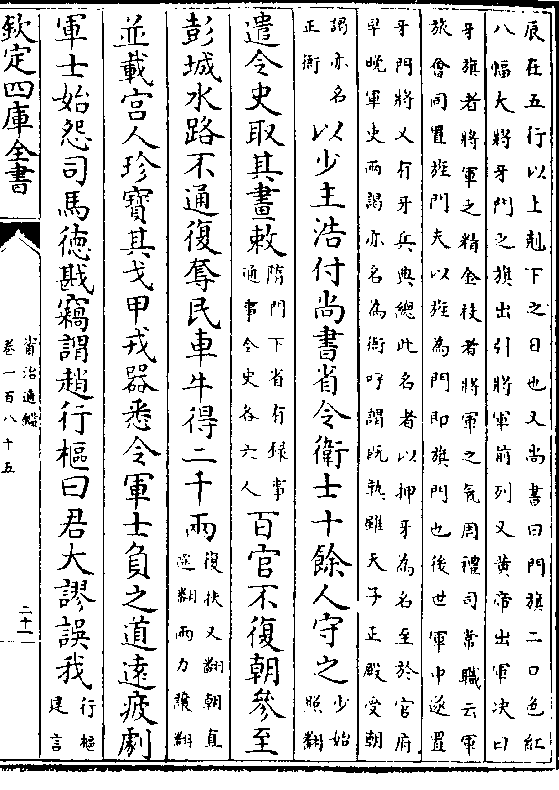 辰在五行以上剋下之日也又尚書曰門旗二口色紅
八幅大將牙門之旗出引將軍前列又黄帝出軍决曰
牙旗者將軍之精金鼓者將軍之氣周禮司常職云軍
旅會同置旌門夫以旌為門即旗門也後世軍中遂置
牙門將又有牙兵典總此名者以押牙為名至於官府
早晚軍吏兩謁亦名為衙呼謂既熟雖天子正殿受朝
謁亦名
正衙
以少主浩付尚書省令衛士十餘人守之
少始
照翻
遣令史取其畫敕
隋門下省有録事
通事令史各六人
百官不復朝參至
彭城水路不通復奪民車牛得二千兩
復扶又翻朝直
遥翻兩力讓翻
並載宫人珍寶其戈甲戎器悉令軍士負之道遠疲劇
軍士始怨司馬德戡竊謂趙行樞曰君大謬誤我
行樞
建言
欽定四庫全書
資治通鑑
卷一百八十五
二十一